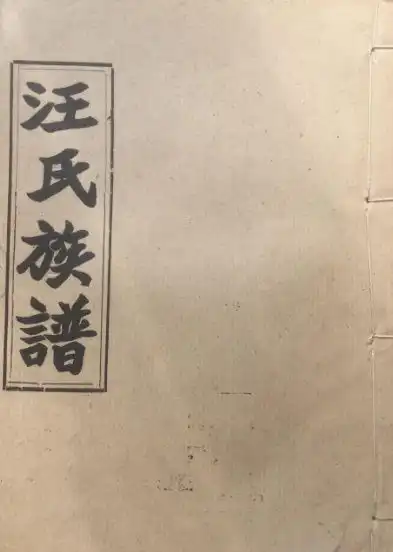 汪氏族譜